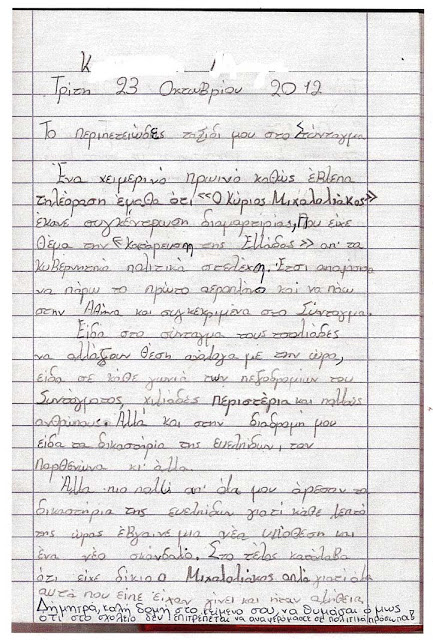 Κ
Τρίτη 23 Οκτωβρίου 2012
Το περιπετειώδες ταξίδι μου στο Σύνταγμα
Ένα χειμερινό πρωινό καθώς έβλεπα
τηλεόραση έμαθα ότι «Ο Κύριος Μιχαλολιάκος»
έκανε συγκέντρωση διαμαρτυρίας, που είχε
θέμα την «Κατάρευση της Ελλάδος» απ' τα
κυβερνητικά πολιτικά στελέχη. Έτσι αποφάσισα
να πάρω το πρώτο αεροπλάνο και να πάω
στην Αθήνα και συγκεκριμένα στο Σύνταγμα.
Είδα στο σύνταγμα τους τσολιάδες
να αλλάζουν θέση ανάλογα με την ώρα,
είδα σε κάθε γωνιά των πεζοδρομιών του
Συντάγματος, χιλιάδες περιστέρια και πολλούς
ανθρώπους. Αλλά και στην διαδρομή μου
είδα τα δικαστήρια της ευελπίδων, τον
Παρθενώνα κι' άλλα.
Αλλά πιο πολύ απ' όλα μου άρεσαν τα
δικαστήρια της ευελπίδων γιατί κάθε λεπτό
της ώρας έβγαινε μια νέα υπόθεση και
ένα νέο σκάνδαλο. Στο τέλος κατάλαβα
ότι είχε δίκιο ο Μιχαλολιάκος απλά γιατί όλα
αυτά που είπε είχαν γίνει και ήταν αλήθεια
Δήμητρα, καλή δομή στο κείμενό σου, να θυμάσαι όμως
ότι στο σχολείο δεν επιτρέπεται να αναφερόμαστε σε πολιτικά πρόσωπα